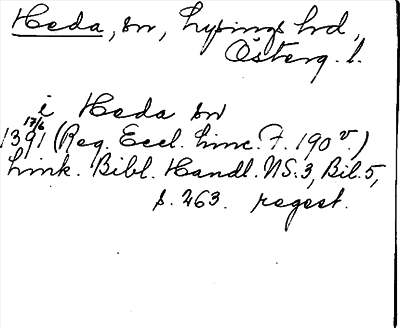 Heda, sn, Lysings hd,
Österg. l.
i Heda sn
17/6
1391 (Reg. Eccl. Linc. F. 190 v.)
Link. Bibl. Handl. NS. 3, Bil. 5,
s. 263. regest.